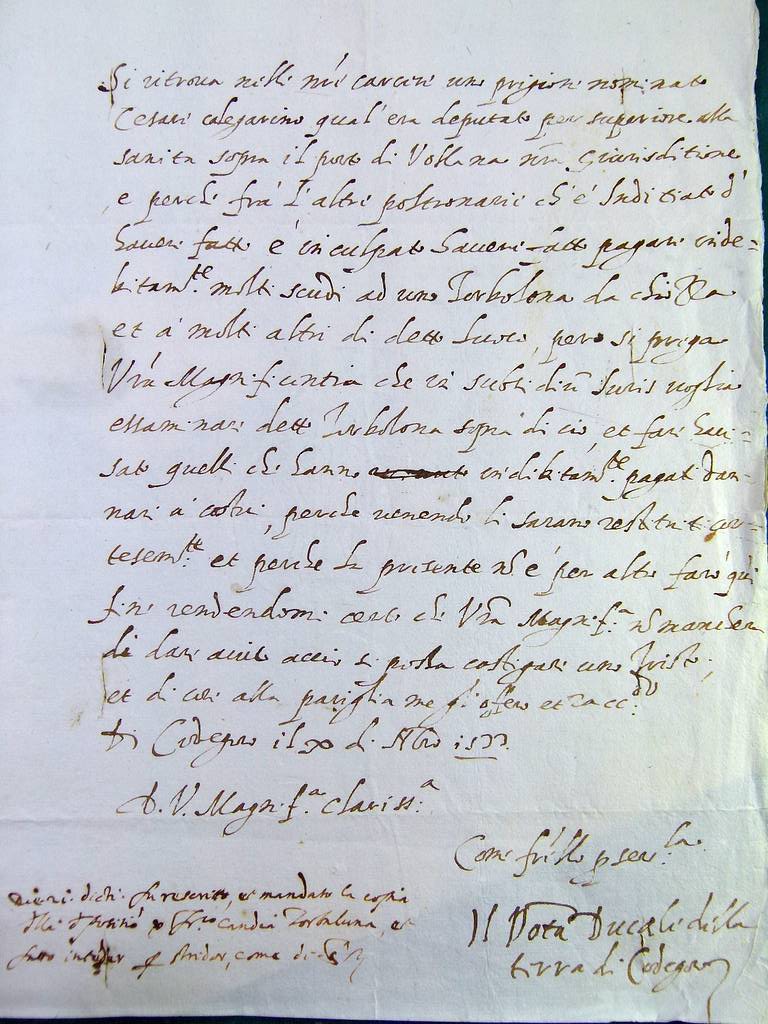 Si ritrova nelle nr̃e carceri uno prigione nominato
Cesare calegarino qual' era deputato per superiore alla
sanita sopra il porto di Vollana nr̃a Giurisditione
e perche frà l'altre poltronarie ch'è Inditiato d'
haveri fatto è inculpato haveri fatto pagare inde=
bitam.te molti scudi ad uno Torbolona da chioza
et à molti altri di detto luoco, pero si prega
Vr̃a Magnificentia che in Iuris voglia
essaminare detto Torbolona sopra di ciò, et fare havi=
sato quelli che hanno indebitam.te pagati dan=
nari à costui, perche venendo li sarano restituiti cor=
tesem.te et perche la presente nõ è per altro farò qui
fine rendendomi certo che Vr̃a Magnif.a nõ mancherà
di dare aviso acciò si possa castigare uno Tristo,
et di così alla pariglia me gli offero et racc.do
Di Codegoro il x di 1577
D. V. Magnif.a Clariss.a
Come fr̃ello p ser.la
Il Pota Ducale della
terra di Codegoro
dicti fu rescritto, et mandato la copia
p Fr.co candia Torboluna, et
fatto p Stridor, come di